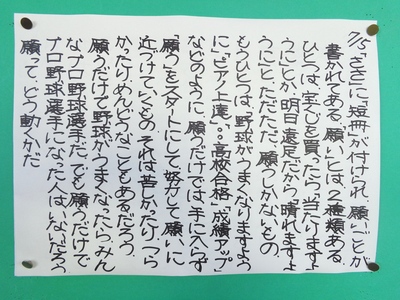 7/5 ささに「短冊」が付けられ、願いごとが
書かれてある。「願い」には、2種類ある。
ひとつは、宝くじを買ったら「当たりますよ
うに」とか、明日遠足だから「晴れますよ
うに」と、ただただ、願うしかないもの。
もうひとつは、「野球がうまくなりますよう
に」「ピアノ上達」「○○高校合格」「成績アップ」
などのように、願うだけでは手に入らず
「願う」をスタートにして、努力して願いに
近づけていくもの。それは苦しかったり、つら
かったり、めんどうなこともあるだろう。
願うだけで野球がうまくなったら、みん
なプロ野球選手だ。でも願うだけで
プロ野球選手になった人はいないだろう
願って、どう動くかだ